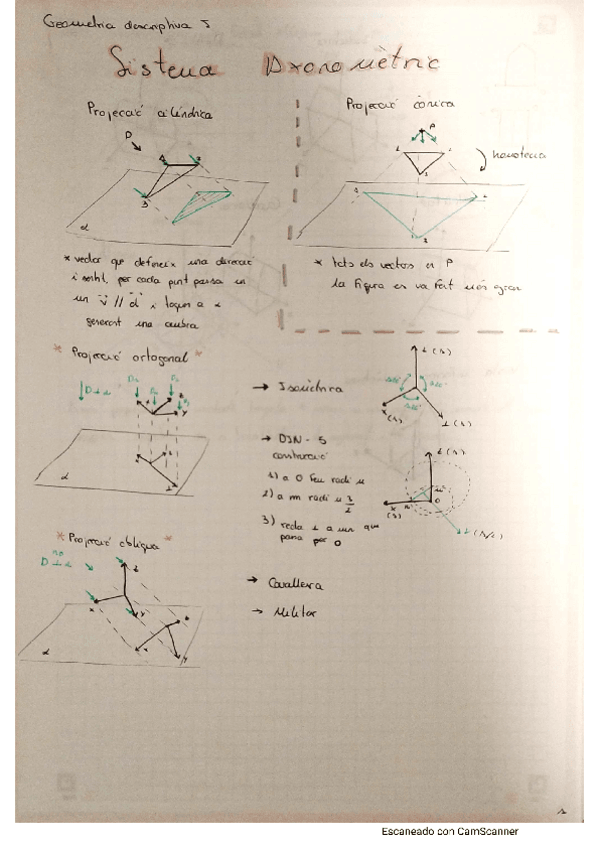 Geometria descriptiva I
Sistema Axonomètric
Projecció cilíndrica
D
α
* vector que defineix una direcció
i sentit, per cada punt passa un
un v // d i toquen a α
generant una ombra
Projecció cònica
P
homotecia
* tots els vectors en P
la figura es va fent més gran
* Projecció ortogonal *
D⊥α
α
→ Isomètrica
→ DIN - 5
construcció
1) a O feu radi u
2) a m radi u
3) recta ⊥ a un que
passa per O
* Projecció obliqua *
no
D⊥α
α
→ Cavallera
→ Militar
1
Escaneado con CamScanner